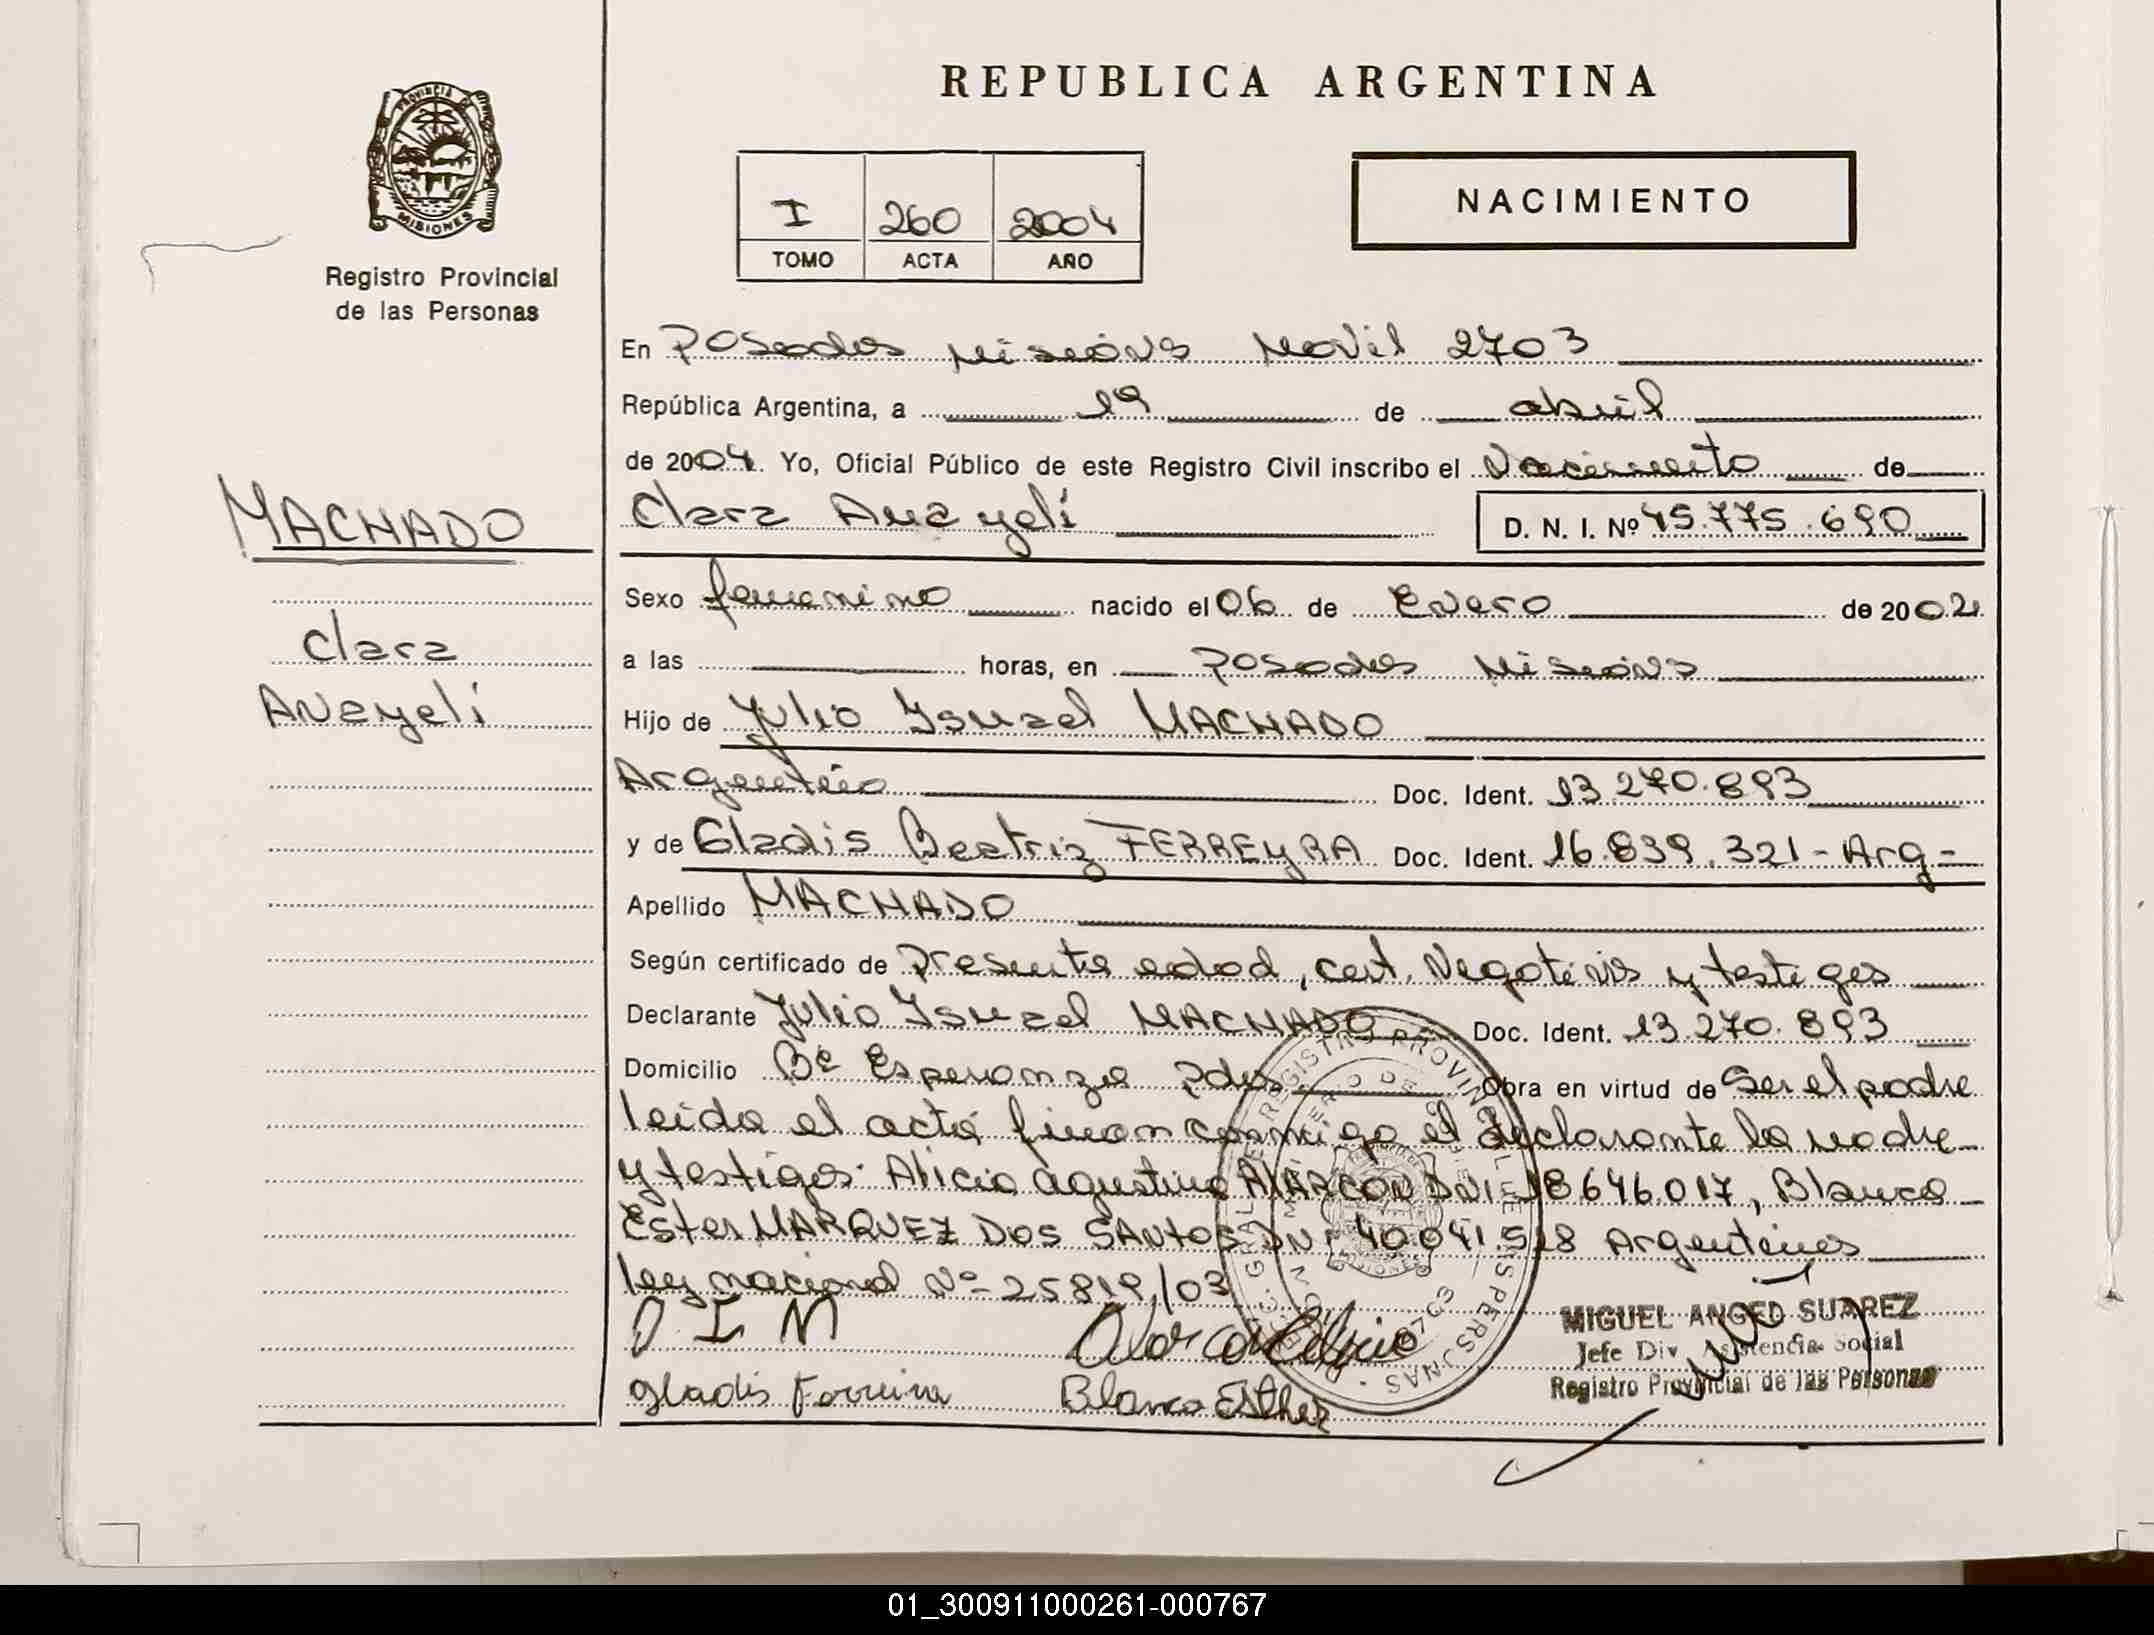 REPUBLICA ARGENTINA
PROVINCIA DE MISIONES
Registro Provincial
de las Personas
I 260 2004
TOMO ACTA AÑO
NACIMIENTO
En Posadas Misiones Movil 2703
República Argentina, a 19 de abril
de 2004. Yo, Oficial Público de este Registro Civil inscribo el Nacimiento de
MACHADO
Clara Anayeli
Clara Anayeli D. N. I. Nº 45.775.690
Sexo femenino nacido el 06 de Enero de 2002
a las horas, en Posadas Misiones
Hijo de Julio Ismael MACHADO
Argentino Doc. Ident. 13.270.893
y de Gladis Beatriz FERREYRA Doc. Ident. 16.839.321 - Arg -
Apellido MACHADO
Según certificado de Presunta edad, cert. Negativos y testigos
Declarante Julio Ismael MACHADO Doc. Ident. 13.270.893
Domicilio Bº Esperanza Pdas. Obra en virtud de Ser el padre
leida el acta firman conmigo el declarante la madre
y testigos: Alicia Agustina ALARCON DNI 18646.017, Blanca
Ester MARQUEZ DOS SANTOS DNI 40041.518 Argentinas
ley nacional Nº 25819/03
J. I. M
Gladis Ferreira
Blanca Esther
MIGUEL ANGEL SUAREZ
Jefe Div. Asistencia Social
Registro Provincial de las Personas
01_300911000261-000767